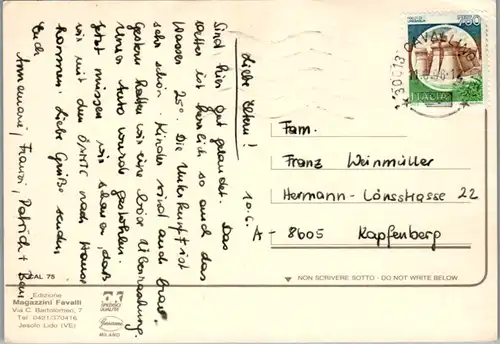 10.6.
Liebe Eltern!
Sind hier gut gelandet. Das
Wetter ist herrlich so auch das
Wasser 25°. Die Unterkunft ist
sehr schön. Kinder sind auch brav.
Gestern hatten wir eine böse Überraschung.
Unser Auto wurde gestohlen.
Jetzt müssen wir schauen, daß
wir mit dem ÖAMTC nach Hause
kommen. Liebe Grüße senden
Euch
Annemarie, Franzi, Patrick +
750
ITALIA
30013 CAVALLINO
Fam.
Franz Weinmüller
Hermann-Lönsstrasse 22
A - 8605 Kapfenberg
NON SCRIVERE SOTTO - DO NOT WRITE BELOW
CAL 75
Edizione
Magazzini Favalli
Via C. Bartolomeo, 7
Tel 0421/370416
Jesolo Lido (VE)
MILANO